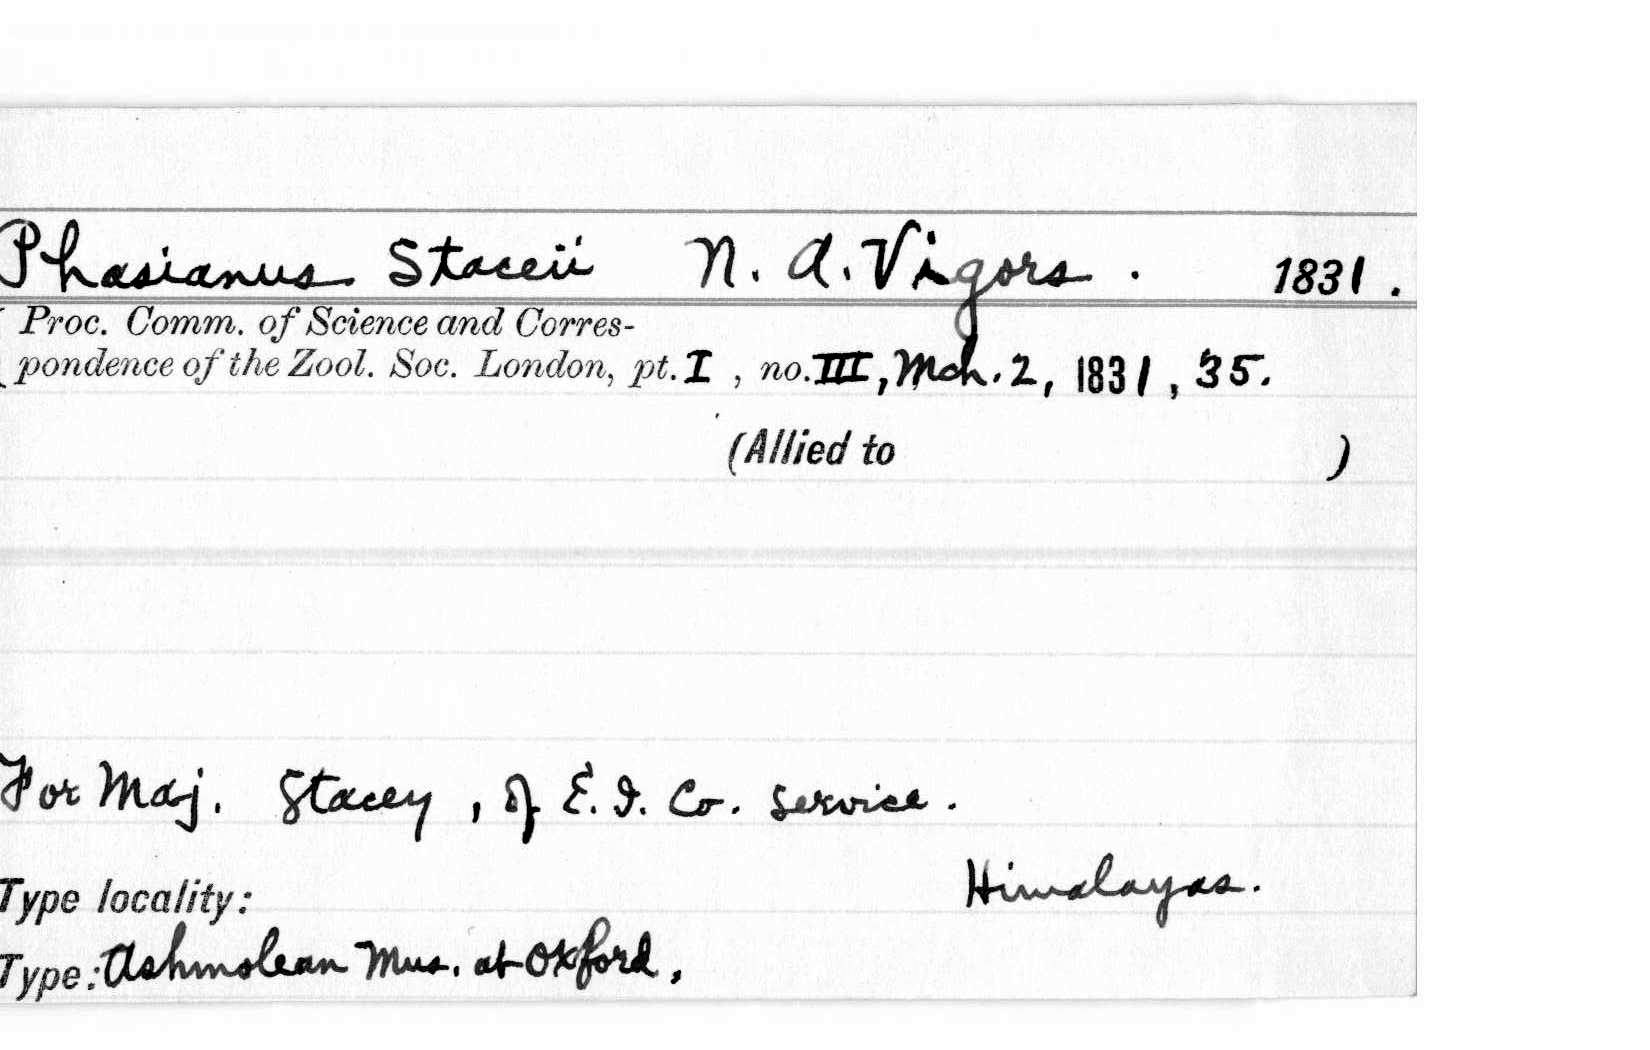 Phasianus Staceii N. A. Vigors. 1831.
Proc. Comm. of Science and Corres-
pondence of the Zool. Soc. London, pt. I, no. III, Mch. 2, 1831, 35.
(Allied to )
For Maj. Stacey, of E. I. Co. service.
Type locality: Himalayas.
Type: Ashmolean Mus. at Oxford.